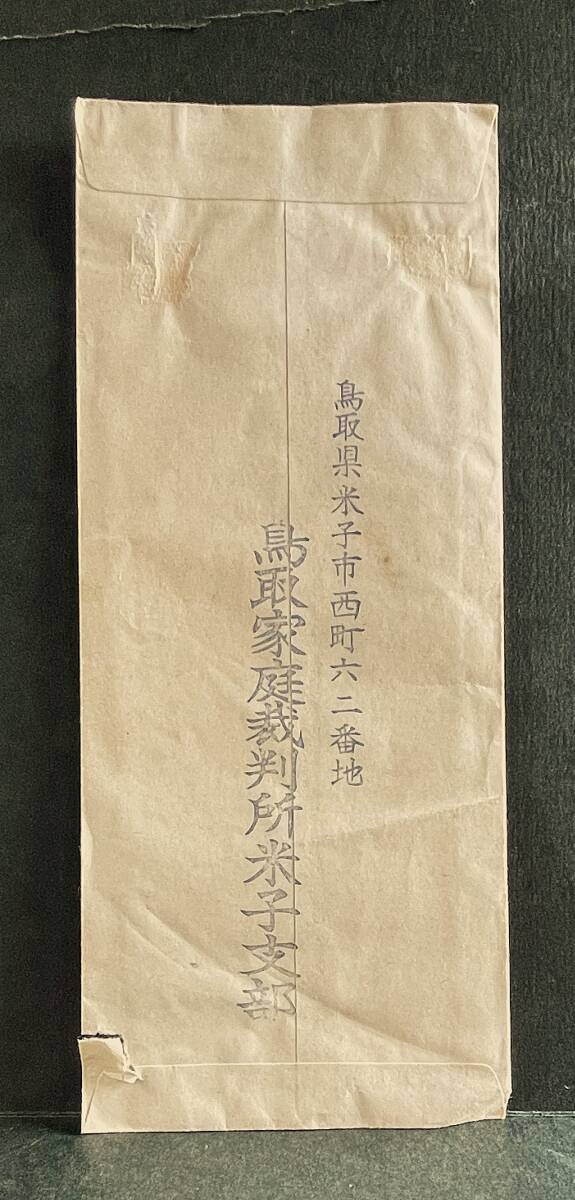 鳥取県米子市西町六二番地
鳥取家庭裁判所米子支部